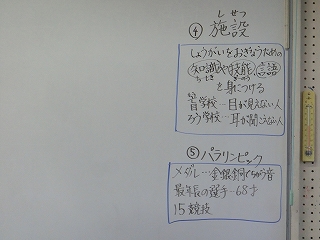 しせつ
④施設
しょうがいをおぎなうための
知識や技能、言語
ちしき ぎのう
を身につける
盲学校…目が見えない人
ろう学校…耳が聞こえない人
⑤パラリンピック
メダル…金銀銅でちがう音
最年長の選手…68才
15競技